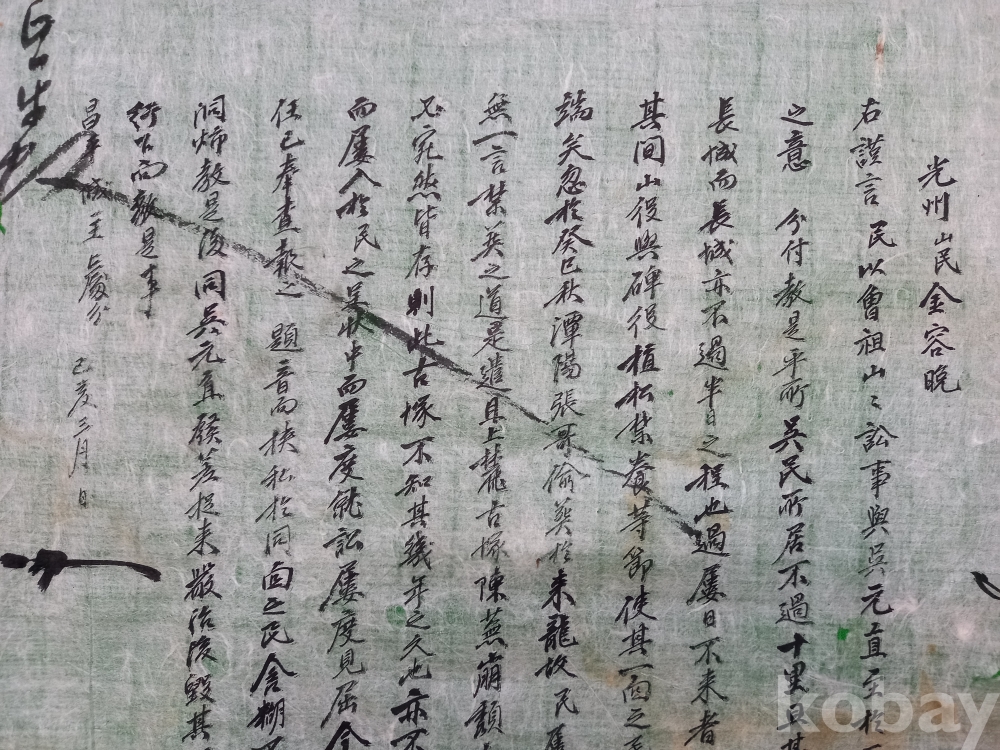 光州山民金容晩
右謹言民以曾祖山〻訟事與吳元直至於
之意 分付敎是乎所吳民所居不過十里且
長城而長城亦不過半日之程也過屢日不來者
其間山役與碑役植松禁養等節使其一面之
矣忽於癸巳秋潭陽張哥偸葬於來龍故民
無一言禁葬之道是遣且上麓古塚陳蕪崩頹
宛然皆存則此古塚不知其幾年之久也亦不
而屢入於民之呈狀中而屢度就訟屢度見屈今
任已奉査報之 題音而挾私於同面之民含糊
洞燭敎是後同吳元直發差捉來嚴治後毁其
行下向敎是事
城主 處分
己亥二月 日
kobay